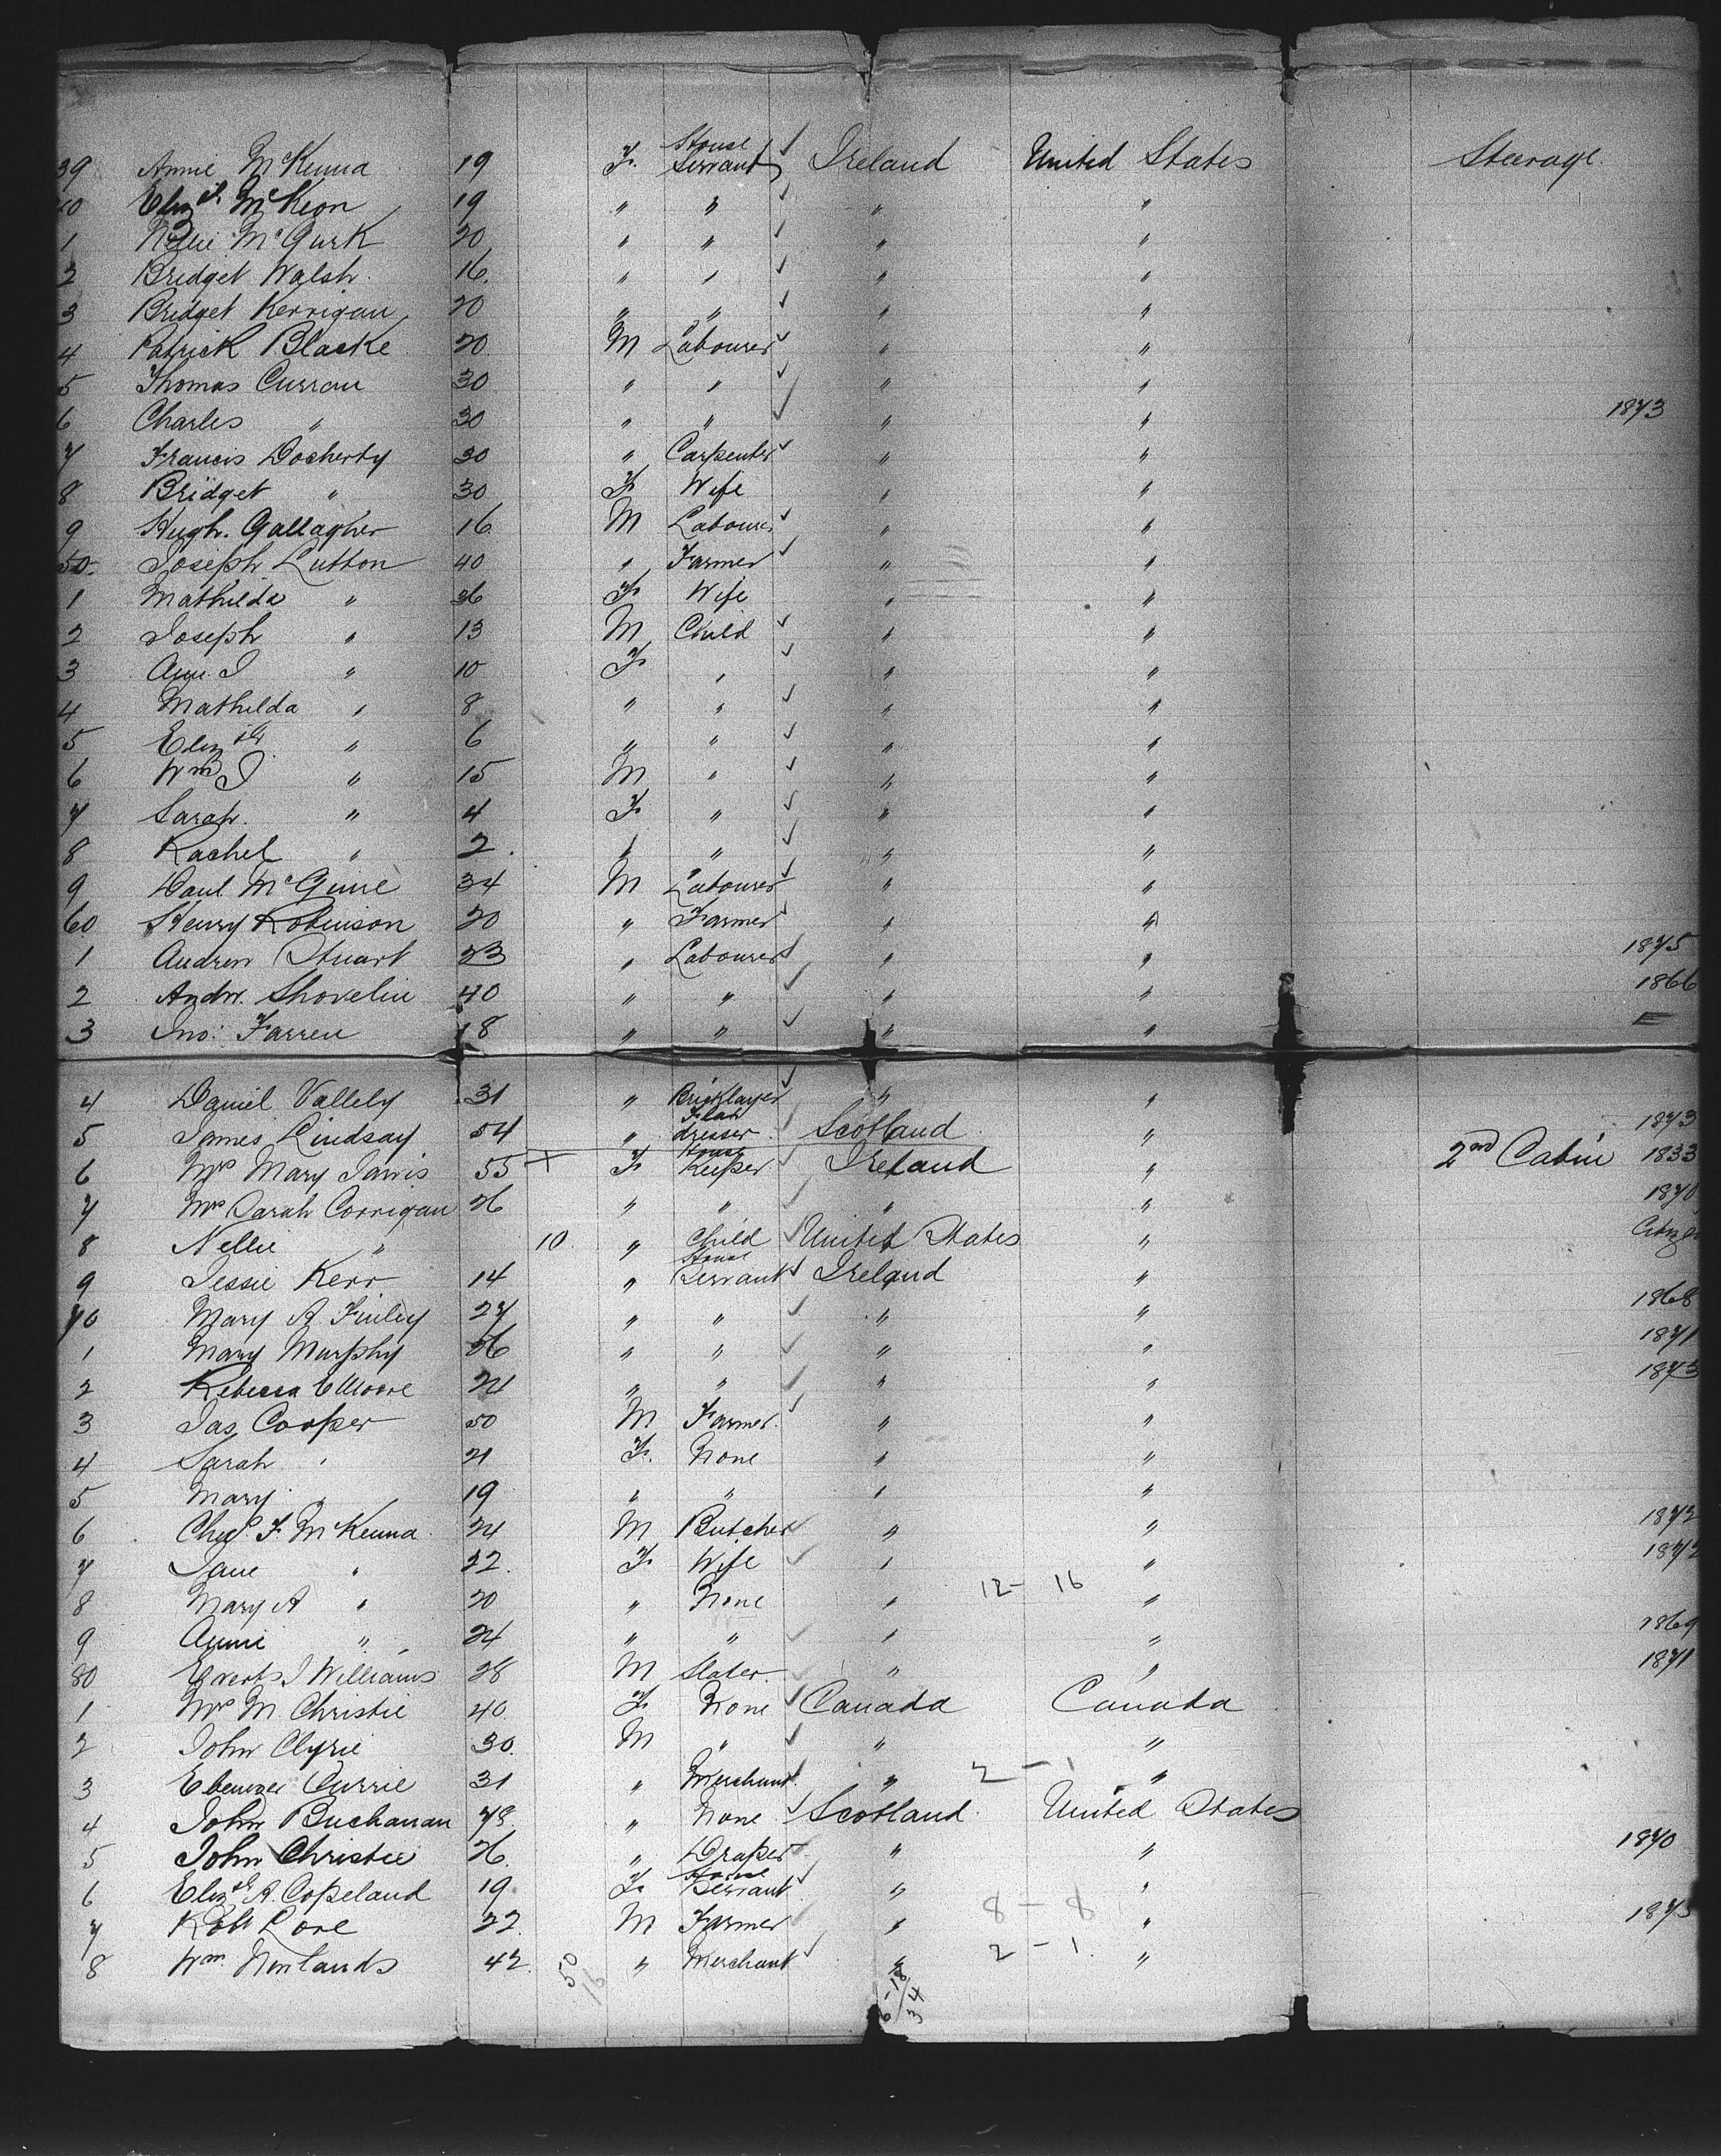 39 Annie McKenna 19 F. House Servant Ireland United States Steerage
40 Elizth McKeon 19 " " " "
1 Nellie McGurk 20 " " " "
2 Bridget Walsh. 16. " " " "
3 Bridget Kerrigan 20 " " " "
4 Patrick Blacke 20. M Labourer " "
5 Thomas Curran 30 " " " "
6 Charles " 30 " " " " 1873
7 Francis Docherty 30 " Carpenter " "
8 Bridget " 30 F Wife " "
9 Hugh. Gallagher 16. M Labourer " "
50. Joseph Lutton 40 " Farmer " "
1 Mathilda " 36 F Wife " "
2 Joseph " 13 M Child " "
3 Ann J " 10 F " " "
4 Mathilda " 8 " " " "
5 Elizth " 6 " " " "
6 Wm J " 15 M " " "
7 Sarah. " 4 F " " "
8 Rachel " 2. " " " "
9 Danl. McGuire 34 M Labourer " "
60. Henry Robinson 20 " Farmer " "
1 Andrew Stuart 23 " Labourer " " 1875
2 Andw. Shovelin 40 " " " " 1866
3 Jno: Farren 18 " " " "
4 Daniel Vallely 31 " Bricklayer " "
5 James Lindsay 54 " Flax dresser Scotland " 1873
6 Mrs Mary Jarvis 55 + F House Keeper Ireland " 2nd Cabin 1833
7 Mrs Sarah Corrigan 26 " " " " 1870
8 Nellie " 10 " Child United States "
9 Jessie Kerr 14 " House Servant Ireland "
70 Mary A. Finley 27 " " " " 1868
1 Mary Murphy 26 " " " " 1871
2 Rebecca E Moore 24 " " " " 1873
3 Jas Cooper 50 M Farmer. " "
4 Sarah " 21 F. None " "
5 Mary " 19 " " " "
6 Chas F McKenna 24 M Butcher " " 1872
7 Jane " 22. F Wife " " 1872
8 Mary A " 20 " None " 12-16 "
9 Annie " 24 " " " " 1869
80 Everts J Williams 28 M Slater " " 1871
1 Mrs M Christie 40. F None Canada Canada
2 John Clyrie 30. M " " "
3 Ebenezer Currie 31 " Merchant " 2-1 "
4 John Buchanan 48 " None Scotland. United States
5 John Christie 26. " Draper " " 1870
6 Elizth A. Copeland 19 F House Servant " "
7 Robt Lore 22. M Farmer " 8-8 " 1873
8 Wm. Newlands 42. 50 16 " Merchant " 2-1. "
6-18
34